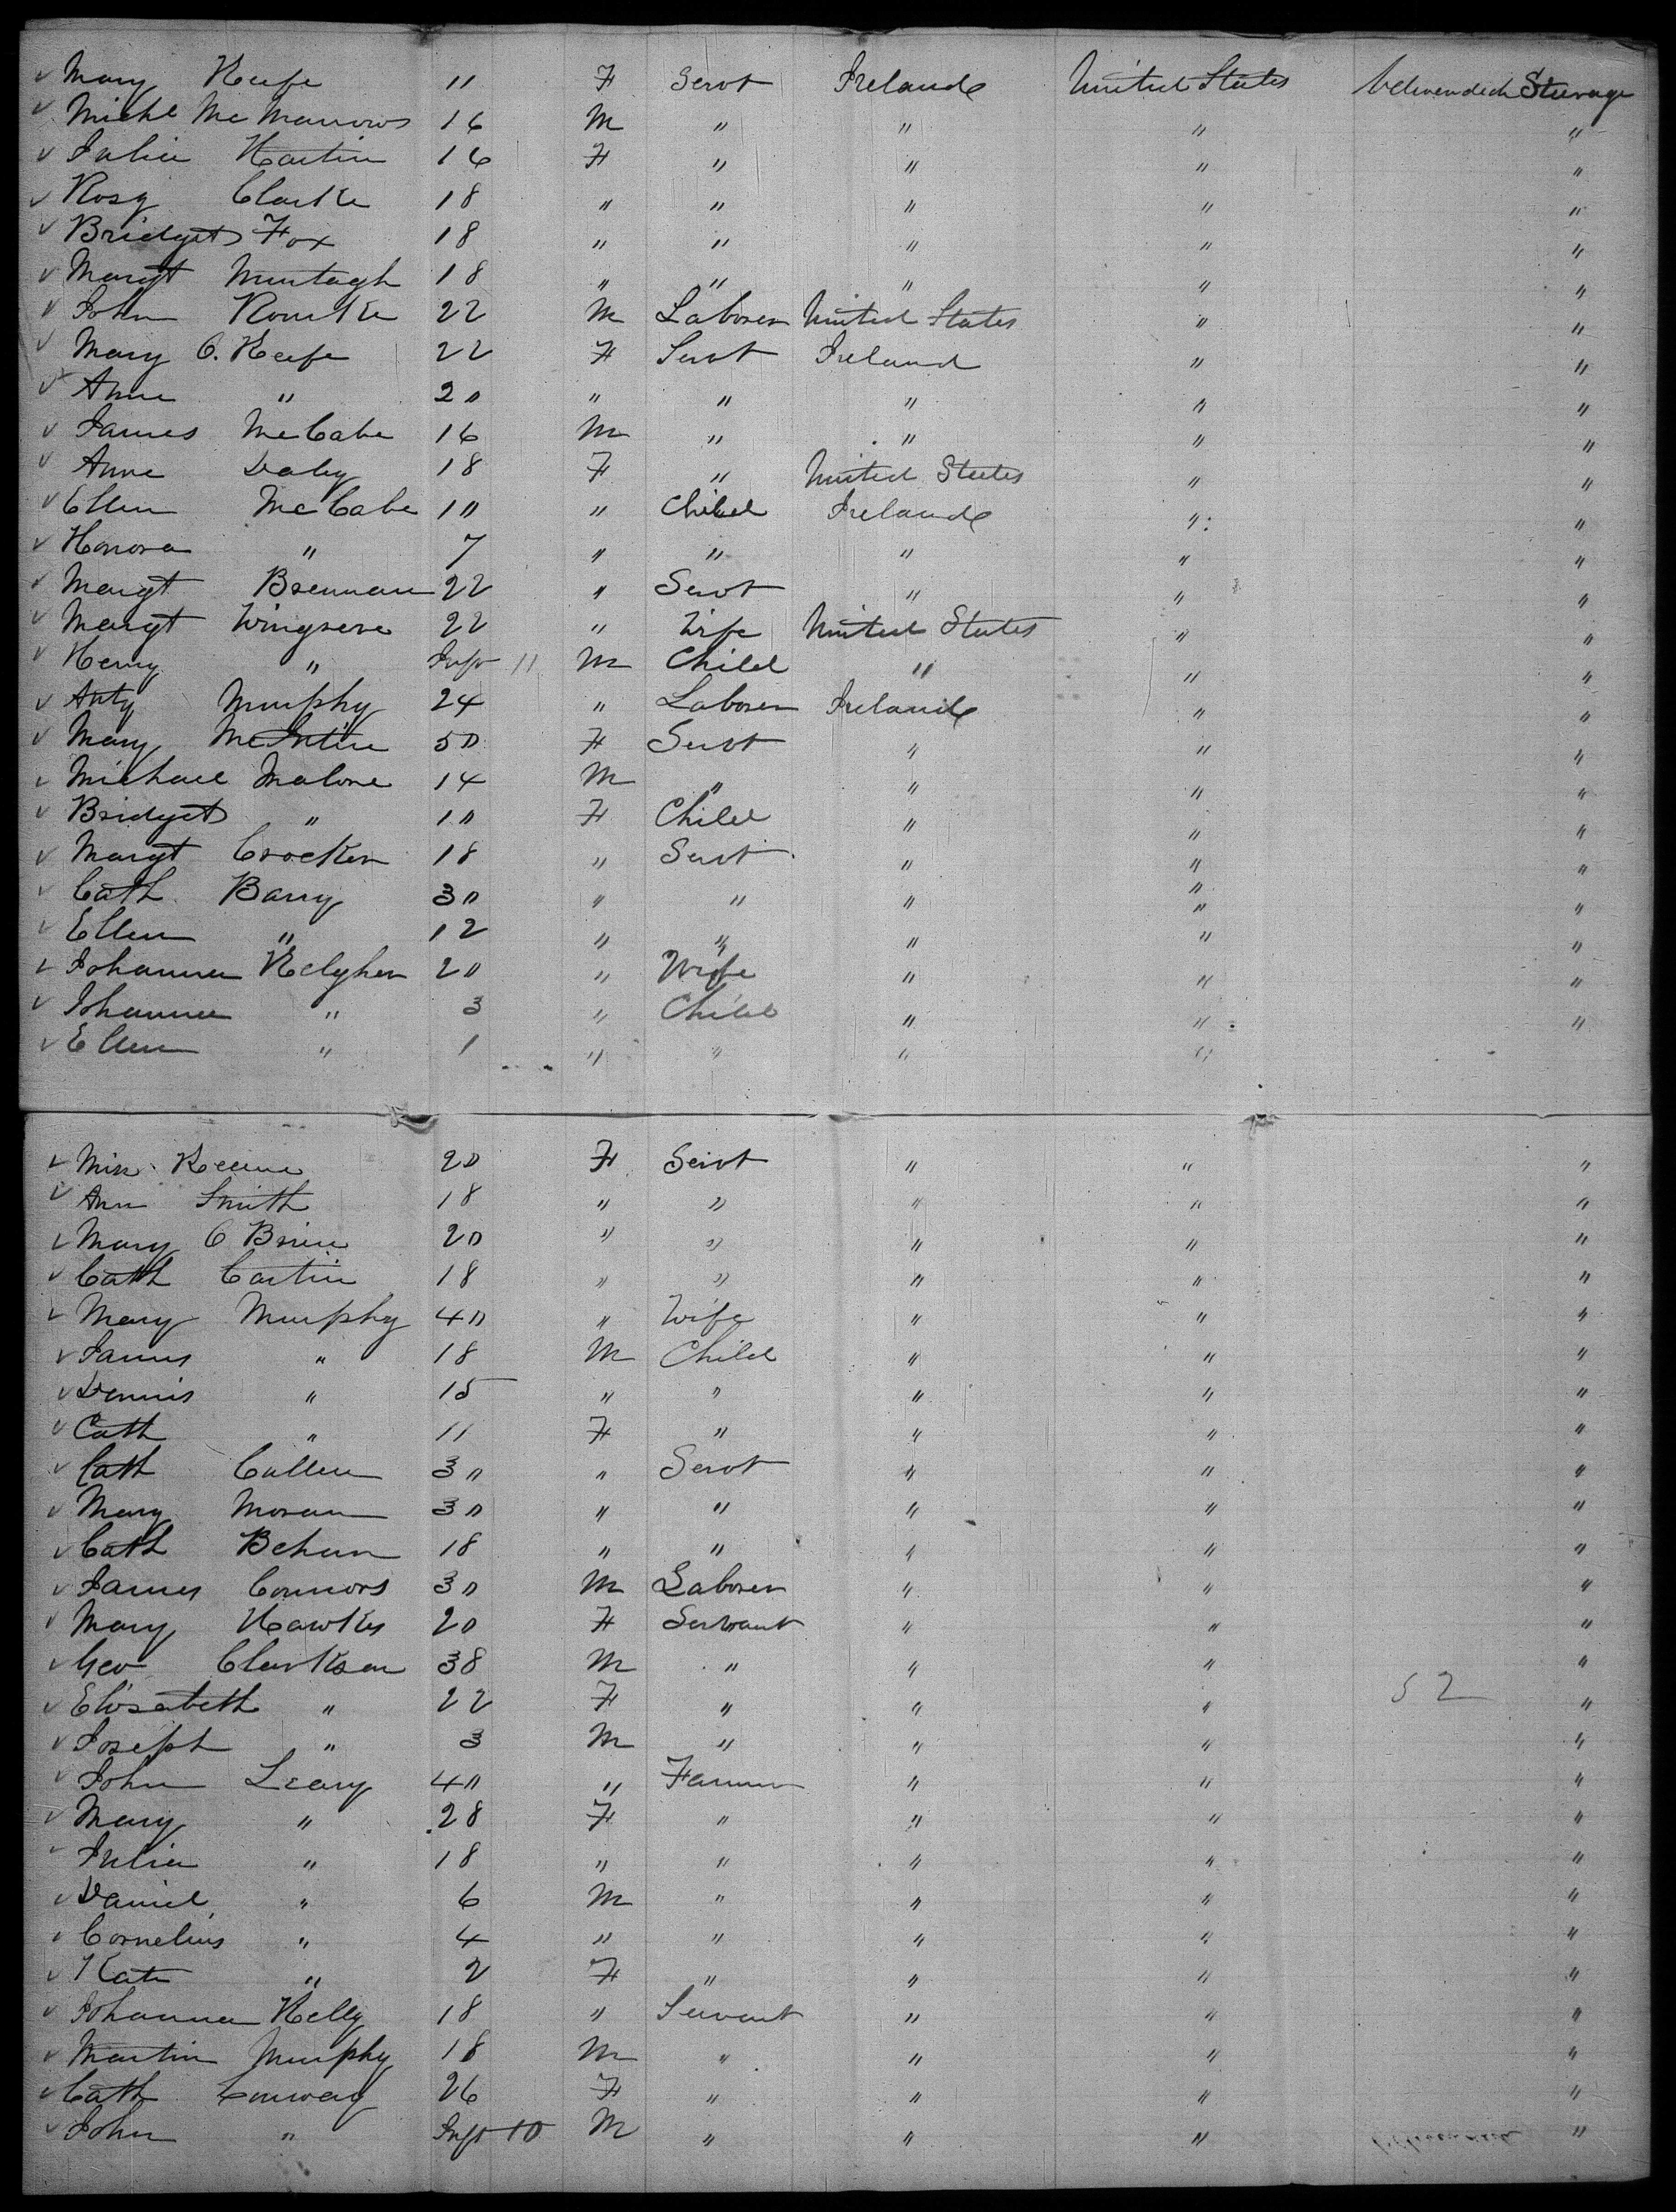 Mary Keefe 11 F Servt Ireland United States Steerage
Michl Mc Manows 16 M " " " "
Julia Hartin 16 F " " " "
Rosy Clarke 18 " " " " "
Bridget Fox 18 " " " " "
Margt Murtagh 18 " " " " "
John Rourke 22 M Laborer United States " "
Mary O. Keefe 22 F Servt Ireland " "
Anne " 20 " " " " "
James McCabe 16 M " " " "
Anne Daly 18 F " United States " "
Ellen McCabe 10 " Child Ireland " "
Honora " 7 " " " " "
Margt Brennan 22 " Servt " " "
Margt Wingrere 22 " Wife United States " "
Henry " Inft 11 M Child " " "
Anty Murphy 24 " Laborer Ireland " "
Mary McIntire 50 F Servt " " "
Michael Malone 14 M " " " "
Bridget " 10 F Child " " "
Margt Crocker 18 " Servt " " "
Cath Barry 30 " " " " "
Ellen " 12 " " " " "
Johanna Kelgher 20 " Wife " " "
Johanna " 3 " Child " " "
Ellen " 1 " " " "
Miss 20 F Servt " " "
Ann Smith 18 " " " " "
Mary O Brien 20 " " " " "
Cath Cartin 18 " " " " "
Mary Murphy 40 " Wife " " "
James " 18 M Child " " "
Dennis " 15 " " " " "
Cath " 11 F " " " "
Cath Cullen 30 " Servt " " "
Mary Moran 30 " " " " "
Cath Behan 18 " " " " "
James Connors 30 M Laborer " " "
Mary Hawkes 20 F Servant " " "
Geo Clarkson 38 M " " " "
Elisabeth " 22 F " " " 52 "
Joseph " 3 M " " " "
John Leary 40 " Farmer " " "
Mary " 28 F " " " "
Julia " 18 " " " " "
Daniel " 6 M " " " "
Cornelius " 4 " " " " "
Kate " 2 F " " " "
Johanna Kelly 18 " Servant " " "
Martin Murphy 18 M " " " "
Cath Conway 26 F " " " "
John " Inft 10 M " " " "